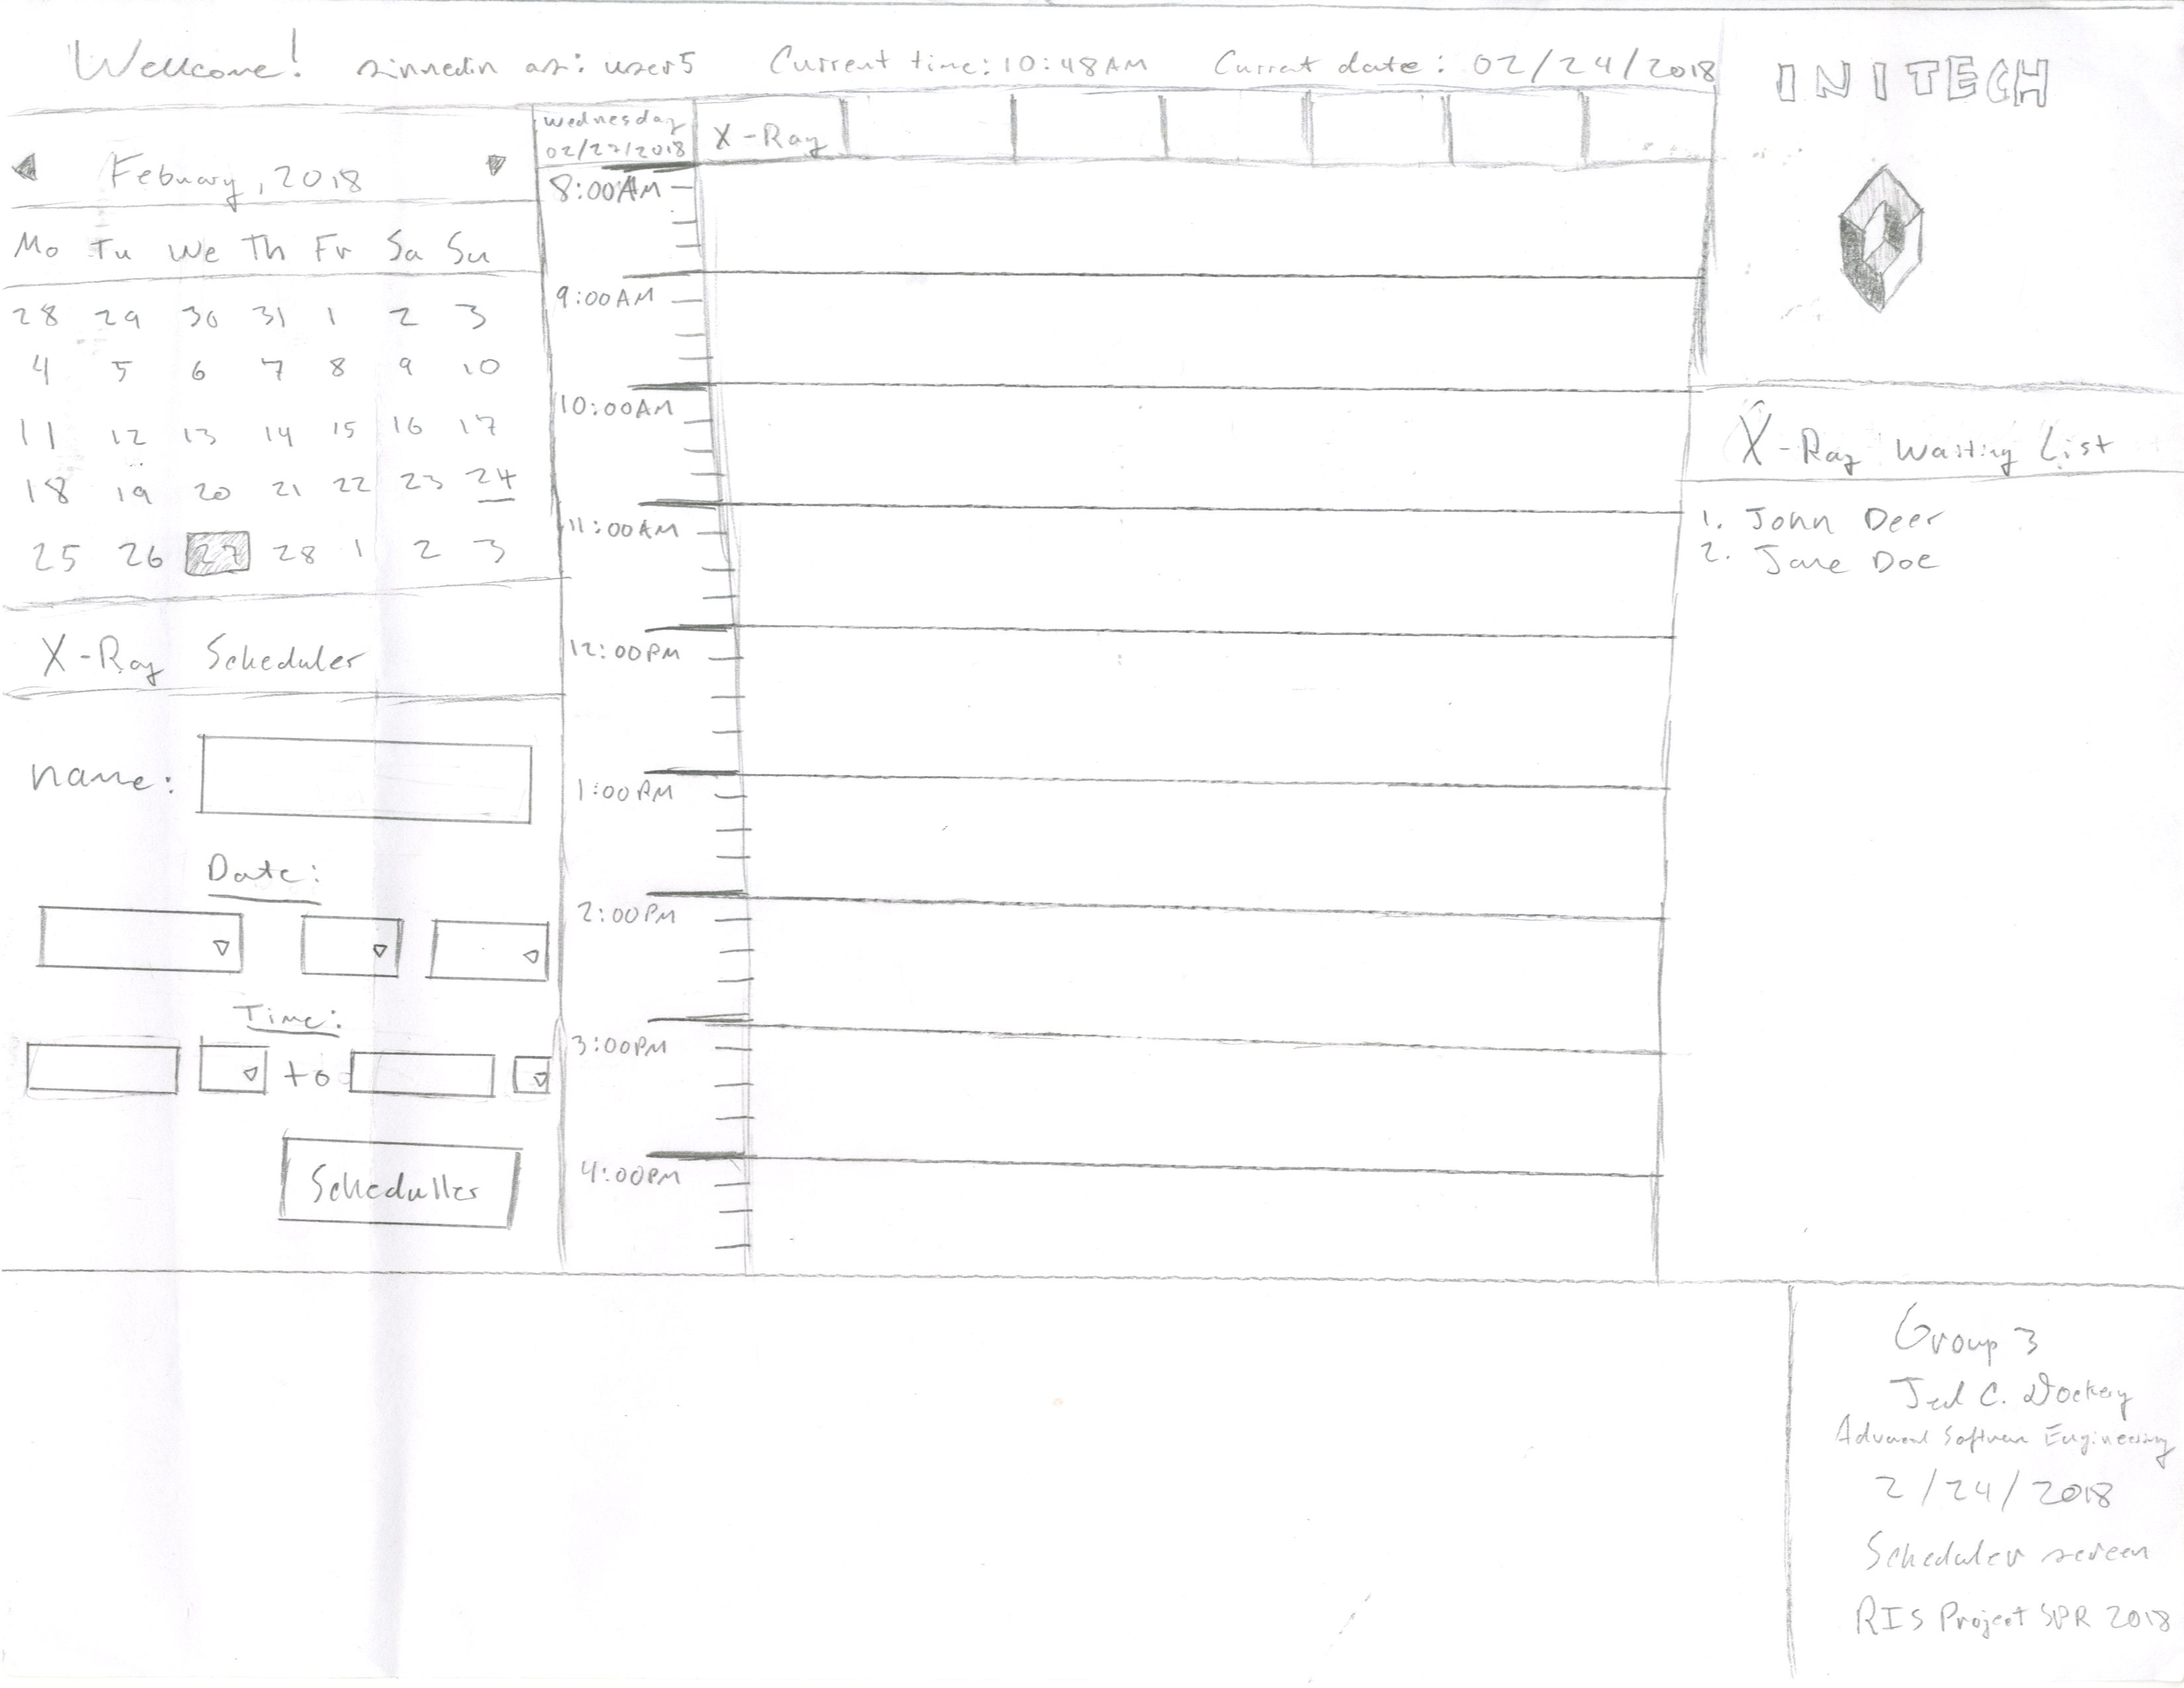 Wellcome! sinnedin as: user5 Current time: 10:48AM Current date: 02/24/2018
INITECH
Febuary, 2018
Mo Tu We Th Fr Sa Su
28 29 30 31 1 2 3
4 5 6 7 8 9 10
11 12 13 14 15 16 17
18 19 20 21 22 23 24
25 26 27 28 1 2 3
X-Ray Scheduler
name:
Date:
Time:
to
Scheduller
Wednesday
02/27/2018
X-Ray
8:00AM
9:00AM
10:00AM
11:00AM
12:00PM
1:00PM
2:00PM
3:00PM
4:00PM
X-Ray Waiting List
1. John Deer
2. Jane Doe
Group 3
Jed C. Dockery
Advanced Software Engineering
2/24/2018
Scheduler screen
RIS Project SPR 2018